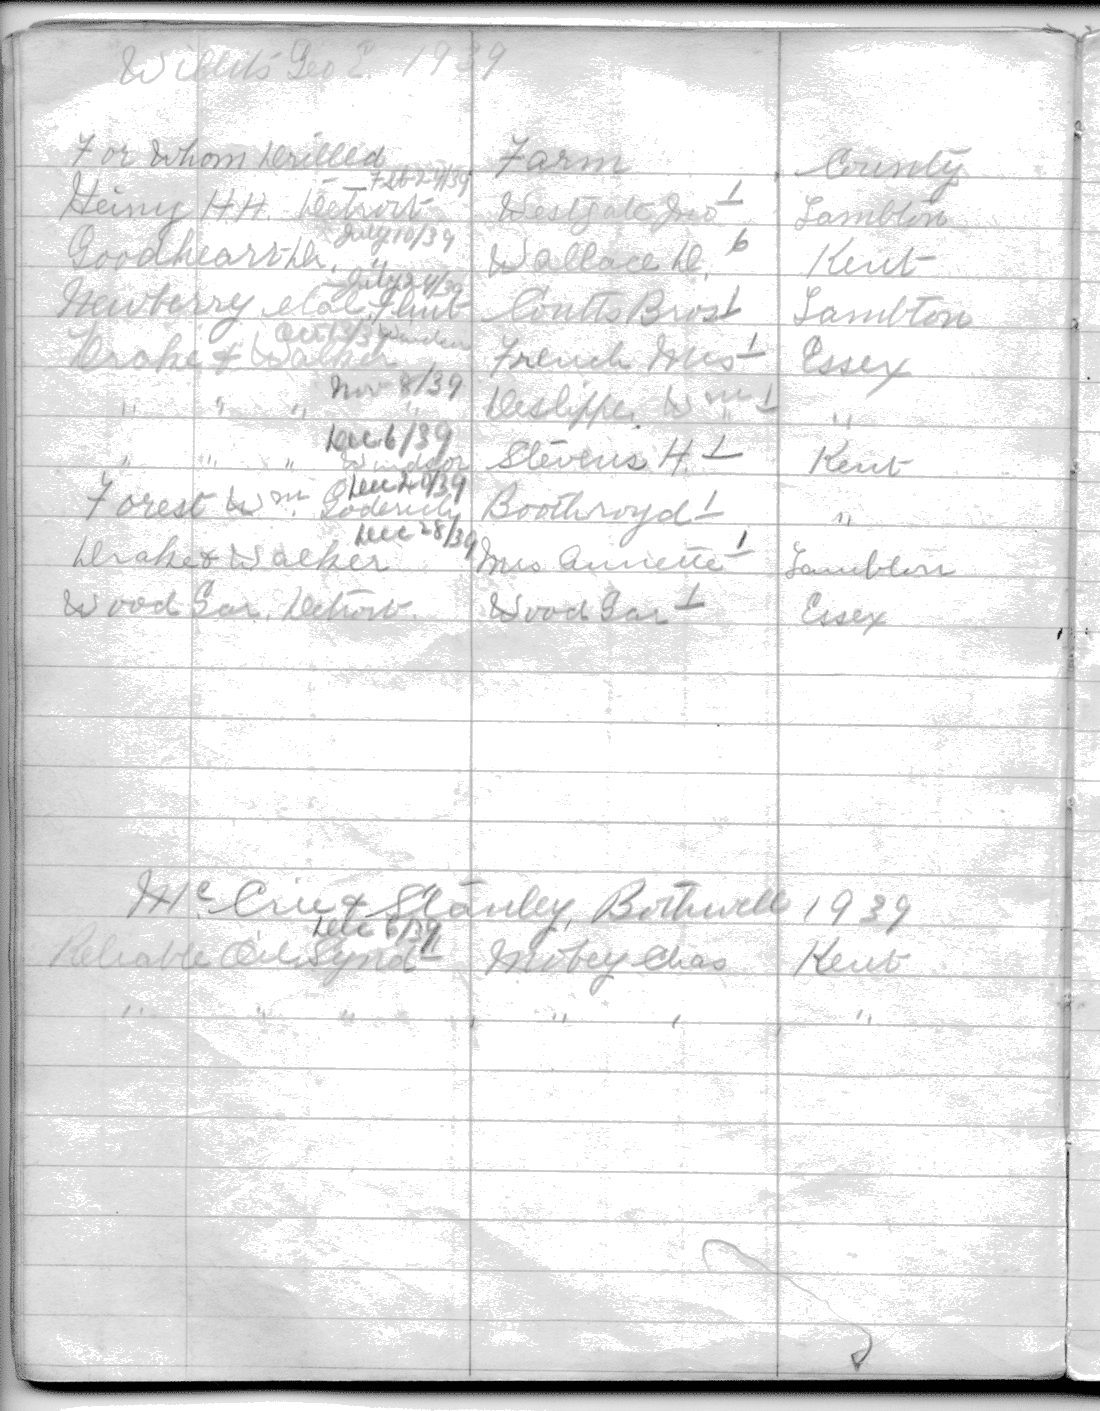 Willits Geo E. 1939
For Whom Drilled Farm County
Feb 24/39
Heiny H.H. Detroit Westgate Jno 1 Lambton
July 10/39
Goodheart D. " Wallace D. 6 Kent
July 24/39
Newberry et al Flint Coutts Bros 1 Lambton
Oct 13/39 Windsor
Drake & Walker French Mrs 1 Essex
Nov 8/39
" " " " Deslippe Wm 1 "
Dec 6/39
" " " Windsor Stevens H. 1 Kent
Dec 20/39
Forest Wm. Goderich Boothroyd 1 "
Dec 28/39
Drake & Walker Mrs Annette 1 Lambton
Wood Gar. Detroit. Wood Gar 1 Essex
Mc Crie & Stanley, Bothwell 1939
Dec 6/39
Reliable Oil Synd 1 Mobey Chas Kent
" " " " " "